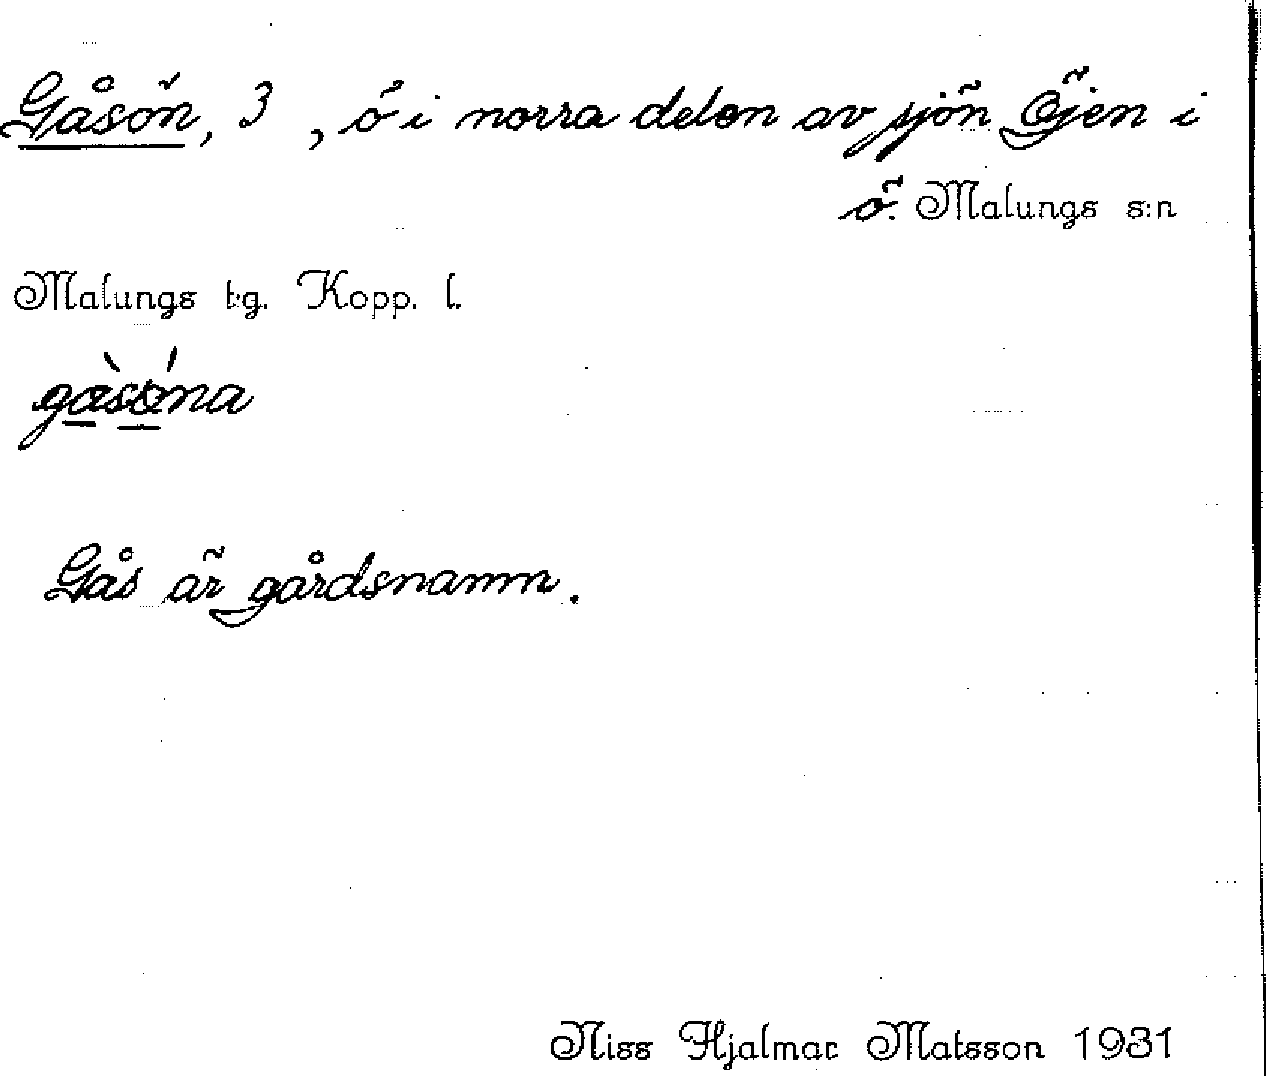 Gåsön, 3 , ö i norra delen av sjön Öjen i
ö. Malungs s:n
Malungs tg. Kopp. l.
gàsǿna
Gås är gårdsnamn.
Niss Hjalmar Matsson 1931